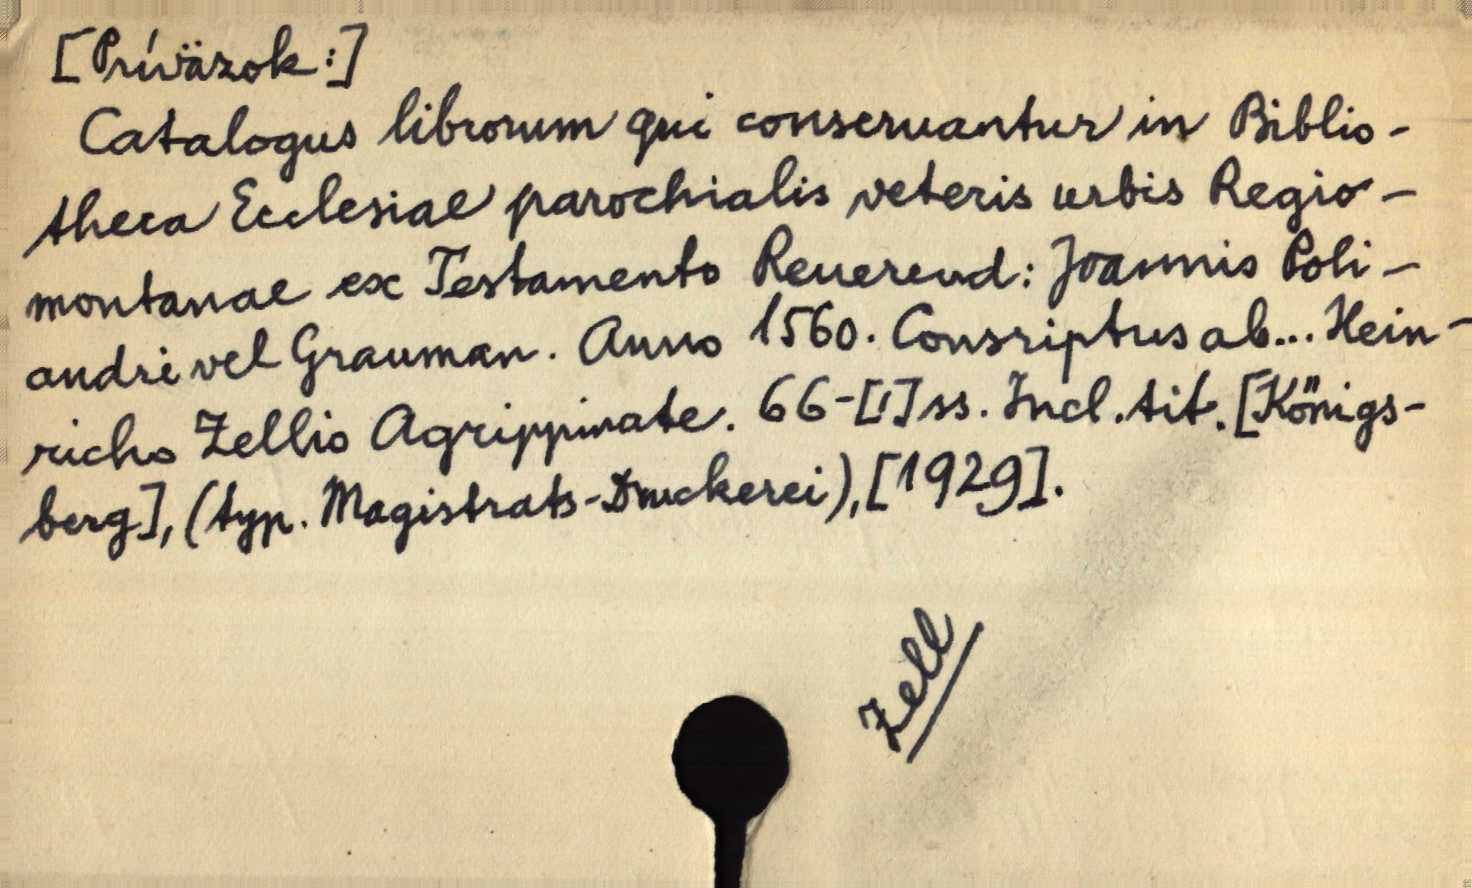 [Príväzok:]
Catalogus librorum qui conseruantur in Biblio-
theca Ecclesiae parochialis veteris urbis Regio-
montanae ex Testamento Reuerend: Joannis Poli-
andri vel Grauman. Anno 1560. Consriptus ab... Hein-
richo Zellio Agrippinate. 66-[1] ss. Incl. tit. [Königs-
berg], (typ. Magistrats-Druckerei), [1929].
Zell